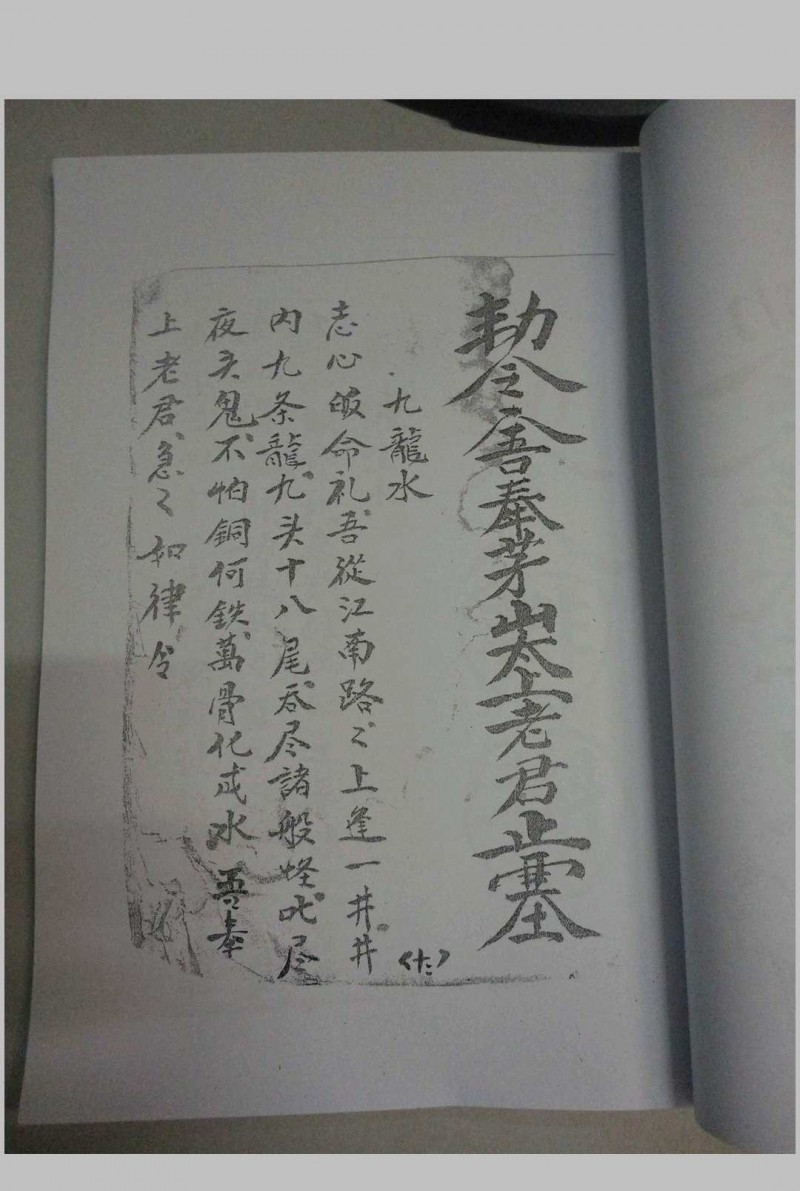 勅令吾奉茅山太上老君止雪土
九龍水
志心皈命礼吾從江南路〻上逢一井井
内九条龍九头十八尾吞尽諸般怪吪尽
夜头鬼不怕銅何鉄萬骨化成水吾奉
上老君急〻如律令
(十二)